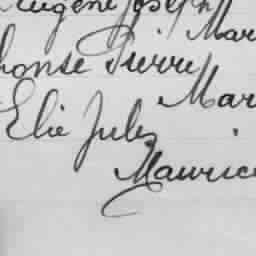 Eugène Joseph
Mar
honse Pierre
Mar
Elie Jules
Maurice